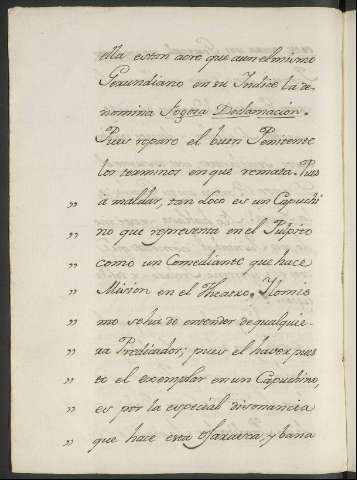 ella es tan acre que aun el mismo
Gerundiano en su Indice la de-
nomina fogosa Declamacion.
Pues repare el buen Penitente
los terminos en que remata. Pues
" á maldar, tan Loco es un Capuchi
" no que representa en el Pulpito
" como un Comediante que hace
" Mision en el Theatro. Ylomis
" mo se ha de entender de qualquie-
" ra Predicador; pues el haver pues
" to el exemplar en un Capuchino,
" es por la especial disonancia
" que hace esta y baria